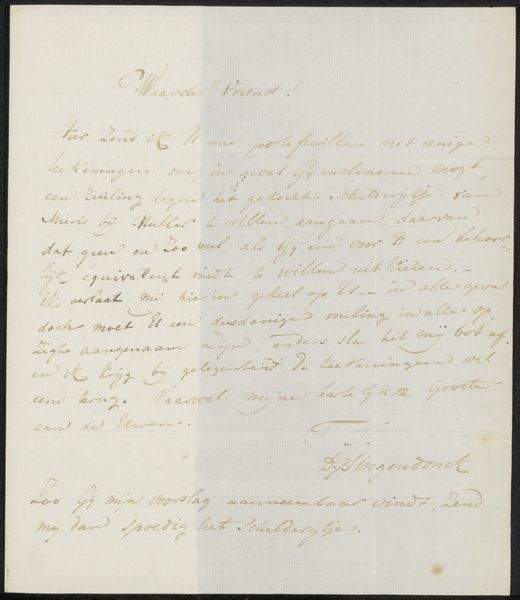 Waarde Vriend!
Hier zend ik U une portefeuille met eenige
teekeningen, om, in geval Gij inclineren mogt,
een ruiling tegen het gekochte Schilderijtje van
Mieris bij Muller te willen aangaan, daarvan
dat geen, en zoo veel als Gij een voor U een behoor-
lijk equivalent vindt, te willen uitkiezen. -
ik verlaat mij hierin geheel op U. - in alle geval
doch moet U een dusdanige ruiling in alle op-
zigte aangenaam zijn, anders sla het mij bot af.
en ik krijg bij gelegenheid de teekeningen wel
eens terug. Vaarwel, mijne hartelijkste Groete
aan de Uwen.
T. T.
D. Singendonck
Zoo Gij mijn voorslag aanneembaar vindt, zend
my dan spoedig het Schilderijtje.